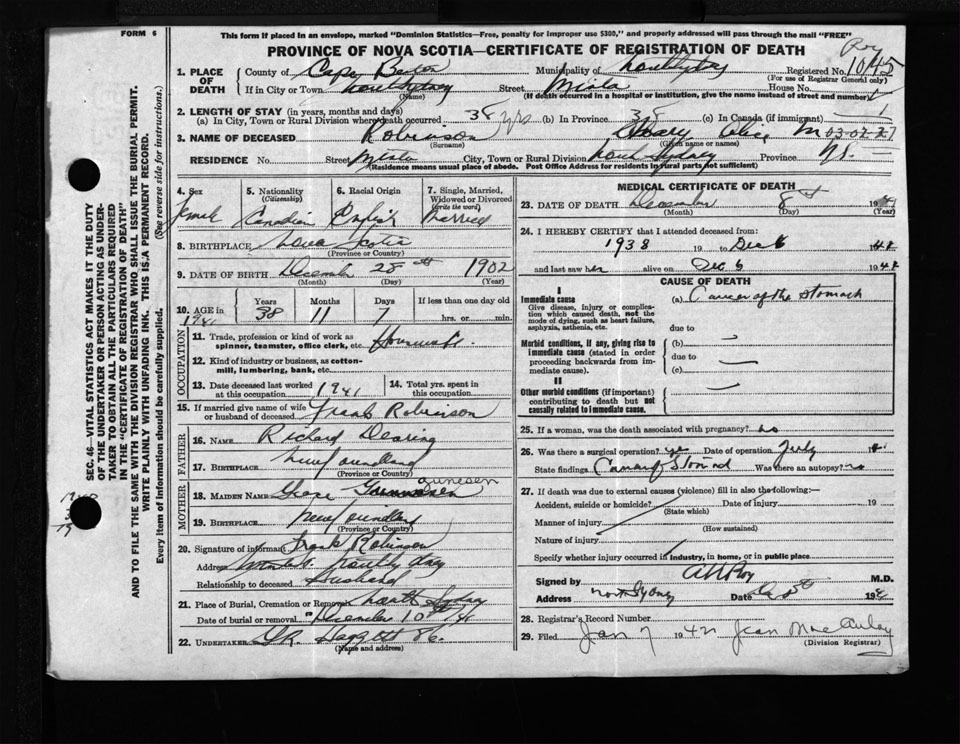 FORM 6
This form if placed in an envelope, marked "Dominion Statistics—Free, penalty for improper use $300," and properly addressed will pass through the mail "FREE"
PROVINCE OF NOVA SCOTIA—CERTIFICATE OF REGISTRATION OF DEATH
1. PLACE OF DEATH County of Cape Breton Municipality of Registered No. 1045
(For use of Registrar General only)
If in City or Town North Sydney Street House No.
(Name) (If death occurred in a hospital or institution, give the name instead of street and number)
2. LENGTH OF STAY (in years, months and days)
(a) In City, Town or Rural Division where death occurred 38 yrs (b) In Province 38 (c) In Canada (if immigrant)
3. NAME OF DECEASED Robinson Mary
(Surname) (Given name or names)
RESIDENCE No. Street City, Town or Rural Division North Sydney Province N.S.
(Residence means usual place of abode. Post Office Address for residents in rural parts not sufficient)
4. Sex Female
5. Nationality (Citizenship) Canadian
6. Racial Origin English
7. Single, Married, Widowed or Divorced (write the word) Married
8. BIRTHPLACE Nova Scotia
(Province or Country)
9. DATE OF BIRTH December 28th 1902
(Month) (Day) (Year)
10. AGE in Years Months Days If less than one day old
1941 38 11 7 hrs. or min.
OCCUPATION
11. Trade, profession or kind of work as spinner, teamster, office clerk, etc. Housewife
12. Kind of industry or business, as cotton-mill, lumbering, bank, etc.
13. Date deceased last worked at this occupation 1941
14. Total yrs. spent in this occupation
15. If married give name of wife or husband of deceased Frank Robinson
FATHER
16. NAME Richard Dearing
17. BIRTHPLACE Newfoundland
MOTHER
18. MAIDEN NAME
19. BIRTHPLACE Newfoundland
(Province or Country)
20. Signature of informant Frank Robinson
Address North Sydney
Relationship to deceased Husband
21. Place of Burial, Cremation or Removal North Sydney
Date of burial or removal December 10th 41
22. UNDERTAKER
(Name and address)
MEDICAL CERTIFICATE OF DEATH
23. DATE OF DEATH December 8th 19
(Month) (Day) (Year)
24. I HEREBY CERTIFY that I attended deceased from:
1938 19 to Dec 19
and last saw her alive on Dec 6 19
CAUSE OF DEATH
I
Immediate cause (a) Cancer of the Stomach
Give disease, injury or complication which caused death, not the mode of dying, such as heart failure, asphyxia, asthenia, etc.
due to
Morbid conditions, if any, giving rise to immediate cause (stated in order proceeding backwards from immediate cause). (b)
due to
(c)
II
Other morbid conditions (if important) contributing to death but not causally related to immediate cause.
25. If a woman, was the death associated with pregnancy? no
26. Was there a surgical operation? yes Date of operation July
State findings Cancer of Stomach Was there an autopsy? no
27. If death was due to external causes (violence) fill in also the following:—
Accident, suicide or homicide? Date of injury 19
(State which)
Manner of injury
(How sustained)
Nature of injury
Specify whether injury occurred in industry, in home, or in public place
Signed by M.D.
Address North Sydney Date 19
28. Registrar's Record Number
29. Filed Jan 7 1942 Jean MacAulay
(Division Registrar)
SEC. 46—VITAL STATISTICS ACT MAKES IT THE DUTY
OF THE UNDERTAKER OR PERSON ACTING AS UNDER-
TAKER TO OBTAIN ALL THE PARTICULARS REQUIRED
IN THE "CERTIFICATE OF REGISTRATION OF DEATH"
AND TO FILE THE SAME WITH THE DIVISION REGISTRAR WHO SHALL ISSUE THE BURIAL PERMIT.
WRITE PLAINLY WITH UNFADING INK. THIS IS A PERMANENT RECORD.
Every item of information should be carefully supplied. (See reverse side for instructions.)